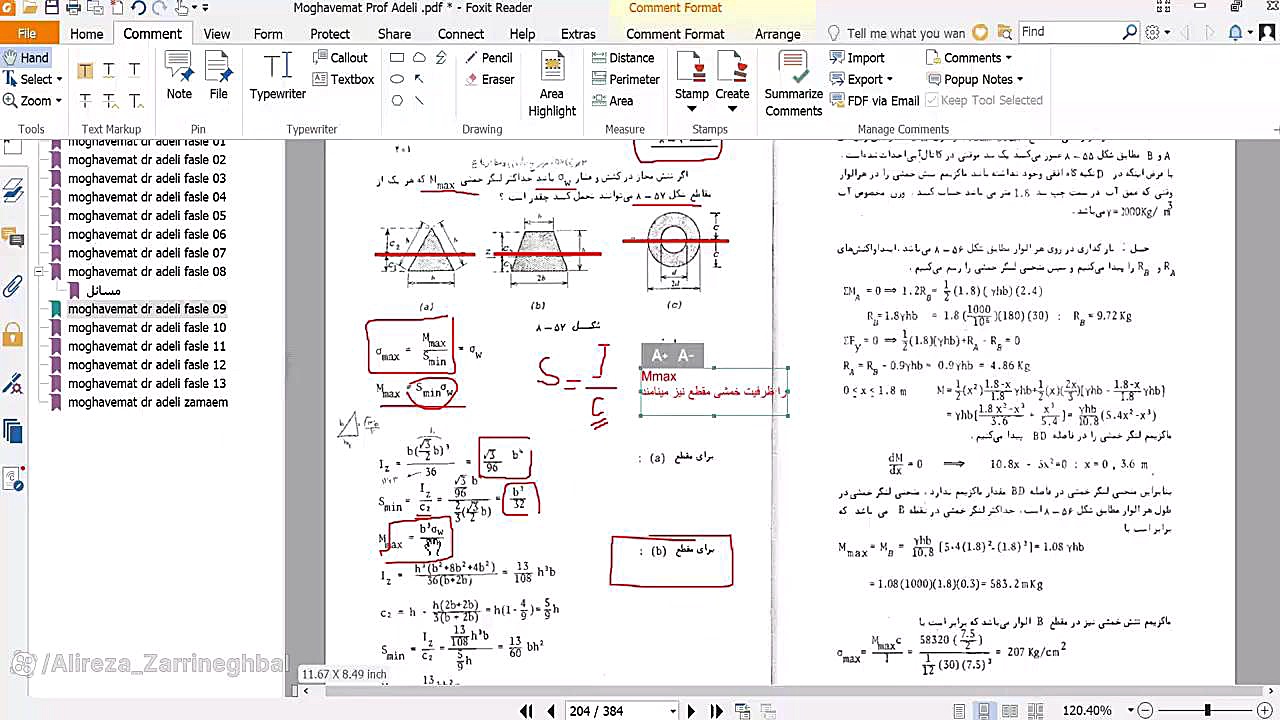 Moghavemat Prof Adeli .pdf * - Foxit Reader
Comment Format
File Home Comment View Form Protect Share Connect Help Extras Comment Format Arrange Tell me what you wan Find
Hand
Select
Zoom
Tools
Text Markup
Note
File
Pin
Typewriter
Callout
Textbox
Typewriter
Pencil
Eraser
Drawing
Area Highlight
Distance
Perimeter
Area
Measure
Stamp
Create
Stamps
Summarize Comments
Import
Export
FDF via Email
Comments
Popup Notes
Keep Tool Selected
Manage Comments
moghavemat dr adeli fasle 01
moghavemat dr adeli fasle 02
moghavemat dr adeli fasle 03
moghavemat dr adeli fasle 04
moghavemat dr adeli fasle 05
moghavemat dr adeli fasle 06
moghavemat dr adeli fasle 07
moghavemat dr adeli fasle 08
مسائل
moghavemat dr adeli fasle 09
moghavemat dr adeli fasle 10
moghavemat dr adeli fasle 11
moghavemat dr adeli fasle 12
moghavemat dr adeli fasle 13
moghavemat dr adeli zamaem
/Alireza_Zarrineghbal
11.67 X 8.49 inch
اگر تنش مجاز در کشش و فشار σw باشد حداکثر لنگر خمشی Mmax که هر یک از
مقاطع شکل ۵۷ – ۸ می‌توانند تحمل کند چقدر است ؟
(a) (b) (c)
شکل ۵۷ – ۸
σmax = Mmax / Smin = σw
Mmax = Smin σw
S = I / c
A+ A-
Mmax
را ظرفیت خمشی مقطع نیز مینامند
برای مقطع (a) :
Iz = b(√3/2 b)³ / 36 = √3/96 b⁴
Smin = Iz / c2 = √3/96 b / 2/3(√3/2 b) = b³/32
Mmax = b³σw
برای مقطع (b) :
Iz = h³(b²+8b²+4b²) / 36(b+2b) = 13/108 h³b
c2 = h - h(2b+2b) / 3(b + 2b) = h(1-4/9) = 5/9 h
Smin = Iz / c2 = 13/108 h³b / 5/9 h = 13/60 bh²
A و B مطابق شکل ۵۵ – ۸ عبور می‌کند یک سد موقتی در کانال آبی احداث شده است .
با فرض اینکه در D تکیه گاه افقی وجود نداشته باشد ماکزیمم تنش خمشی را در هر الوار
وقتی که عمق آب در سمت چپ سد 1.8 متر می باشد حساب کنید . وزن مخصوص آب
γ = 1000Kg/ m³ می‌باشد .
حل : بار گذاری در روی هر الوار مطابق شکل ۵۶ – ۸ می‌باشد . ابتدا واکنش‌های
RA و RB را پیدا می‌کنیم و سپس منحنی لنگر خمشی را رسم می‌کنیم .
ΣMA = 0 ⟹ 1.2RB = 1/2 (1.8)(γhb)(2.4)
RB = 1.8γhb = 1.8 (1000/10⁶)(180)(30) : RB = 9.72 Kg
ΣFy = 0 ⟹ 1/2(1.8)(γhb)+RA - RB = 0
RA = RB - 0.9γhb = 0.9γhb = 4.86 Kg
0 ≤ x ≤ 1.8 m M = 1/2(x²) 1.8-x/1.8 γhb + 1/2(x)(2x/3)[γhb - 1.8-x/1.8 γhb]
= γhb[1.8x²-x³/3.6 + x³/5.4] = γhb/10.8 (5.4x²-x³)
ماکزیمم لنگر خمشی را در فاصله BD پیدا می‌کنیم .
dM/dx = 0 ⟹ 10.8x - 3x²=0 : x = 0 , 3.6 m
بنابراین منحنی لنگر خمشی در فاصله BD مقدار ماکزیمم ندارد . منحنی لنگر خمشی در
طول هر الوار مطابق شکل ۵۶ – ۸ است . حداکثر لنگر خمشی در نقطه B می باشد که
برابر است با
Mmax = MB = γhb/10.8 [5.4(1.8)²-(1.8)³] = 1.08 γhb
= 1.08(1000)(1.8)(0.3) = 583.2 mKg
ماکزیمم تنش خمشی نیز در مقطع B الوار می‌باشد که برابر است با
σmax = Mmax c / I = 58320 (7.5/2) / 1/12 (30)(7.5)³ = 207 Kg/cm²
204 / 384
120.40%